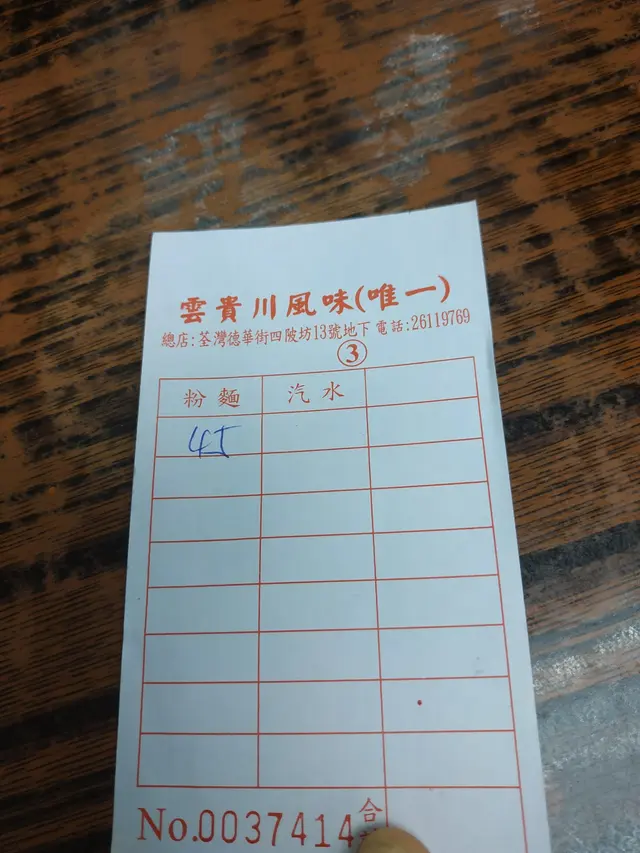 雲貴川風味(唯一)
總店:荃灣德華街四陂坊13號地下 電話:26119769
3
粉麵 汽水
45
No.0037414 合